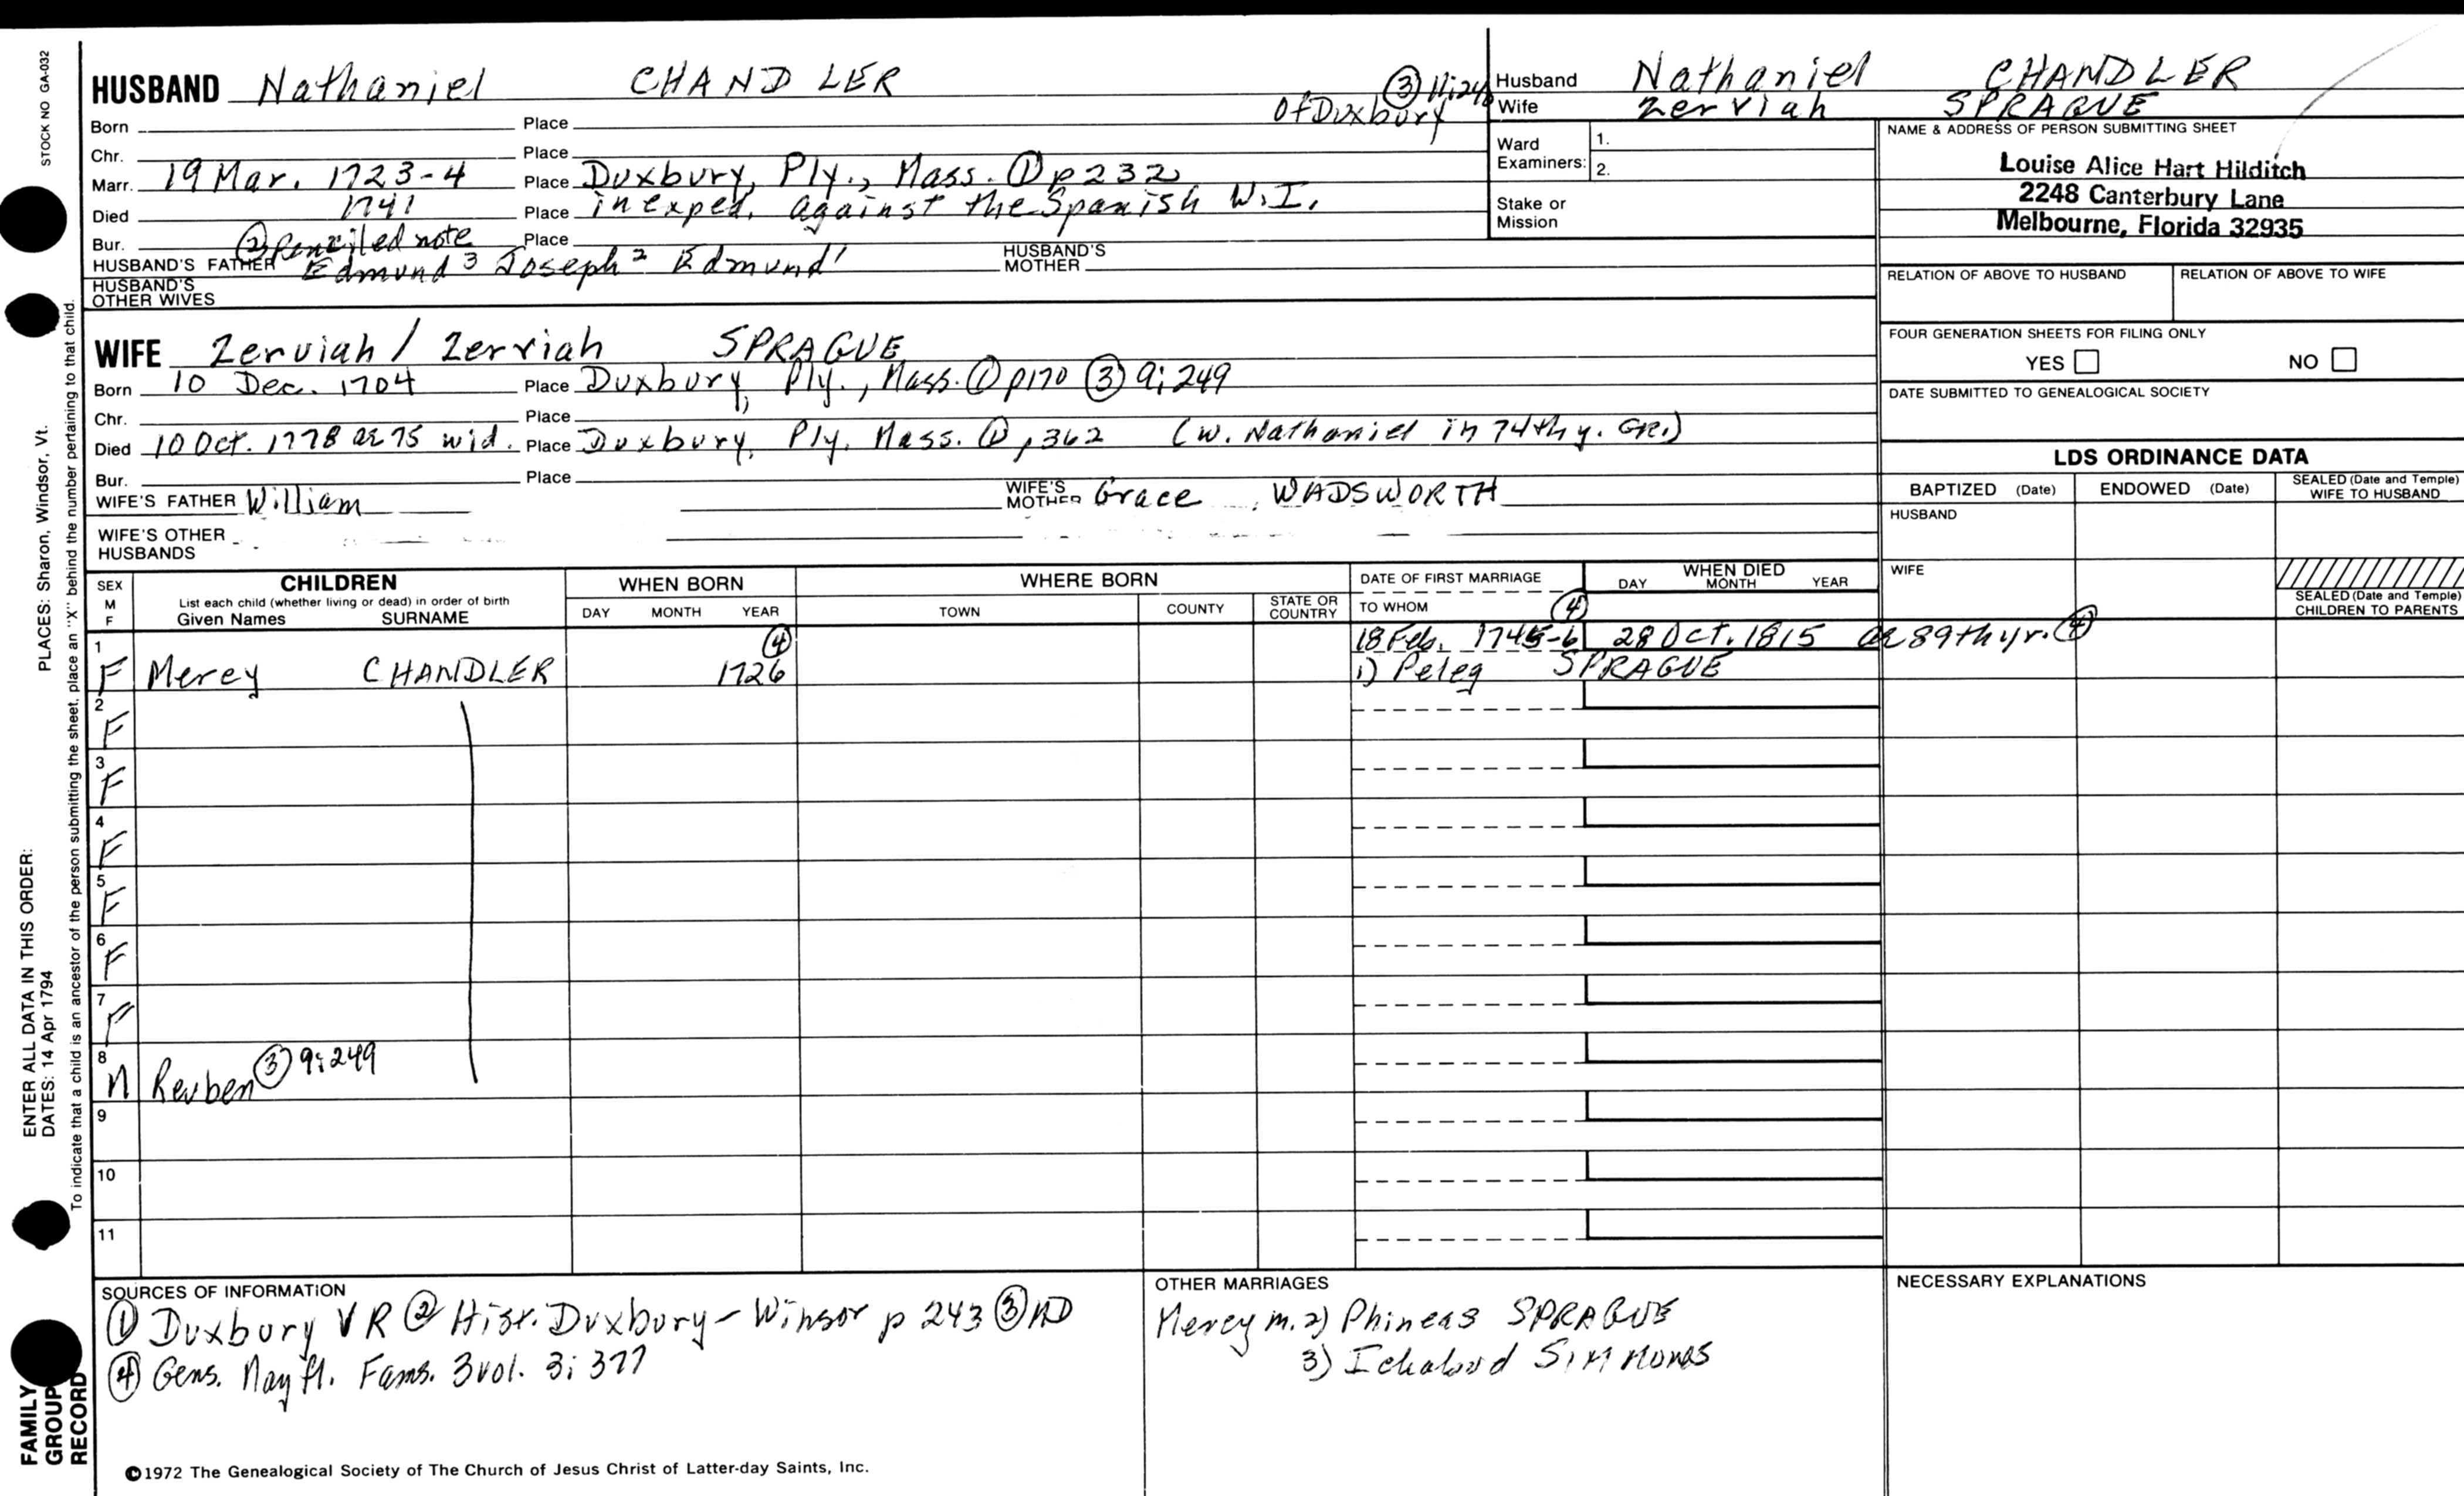 STOCK NO GA-032
PLACES: Sharon, Windsor, Vt.
ENTER ALL DATA IN THIS ORDER:
DATES: 14 Apr 1794
To indicate that a child is an ancestor of the person submitting the sheet, place an "X" behind the number pertaining to that child.
FAMILY
GROUP
RECORD
HUSBAND Nathaniel CHANDLER ③ 11:248
Of Duxbury
Born Place
Chr. Place
Marr. 19 Mar. 1723-4 Place Duxbury, Ply., Mass. ① p 232
Died 1741 Place in exped. against the Spanish W.I.
Bur. ② Penciled note Place
HUSBAND'S FATHER Edmund 3 Joseph 2 Edmund 1 HUSBAND'S MOTHER
HUSBAND'S
OTHER WIVES
WIFE Zeruiah / Zerviah SPRAGUE
Born 10 Dec. 1704 Place Duxbury, Ply., Mass. ① p170 ③ 9:249
Chr. Place "
Died 10 Oct. 1778 ae 75 wid. Place Duxbury, Ply. Mass. ① p 362 (w. Nathaniel in 74th y. GR1)
Bur. Place
WIFE'S FATHER William WIFE'S MOTHER Grace WADSWORTH
WIFE'S OTHER
HUSBANDS
Husband Nathaniel CHANDLER
Wife Zerviah SPRAGUE
Ward 1.
Examiners: 2.
Stake or
Mission
NAME & ADDRESS OF PERSON SUBMITTING SHEET
Louise Alice Hart Hilditch
2248 Canterbury Lane
Melbourne, Florida 32935
RELATION OF ABOVE TO HUSBAND RELATION OF ABOVE TO WIFE
FOUR GENERATION SHEETS FOR FILING ONLY
YES NO
DATE SUBMITTED TO GENEALOGICAL SOCIETY
LDS ORDINANCE DATA
BAPTIZED (Date) ENDOWED (Date) SEALED (Date and Temple)
WIFE TO HUSBAND
HUSBAND
WIFE
SEALED (Date and Temple)
CHILDREN TO PARENTS
SEX
M
F
CHILDREN
List each child (whether living or dead) in order of birth
Given Names SURNAME
WHEN BORN
DAY MONTH YEAR
WHERE BORN
TOWN COUNTY STATE OR COUNTRY
DATE OF FIRST MARRIAGE
TO WHOM
WHEN DIED
DAY MONTH YEAR
④
1 ④ 18 Feb. 1745-6 28 Oct. 1815 ae 89th yr. ④
F Mercy CHANDLER 1726 1) Peleg SPRAGUE
2
F
3
F
4
F
5
F
6
F
7
F
8
M Reuben ③ 9:249
9
10
11
SOURCES OF INFORMATION
① Duxbury VR ② Hist. Duxbury - Winsor p 243 ③ MD
④ Gens. Mayfl. Fams. 3vol. 3:377
OTHER MARRIAGES
Mercy m. 2) Phineas SPRAGUE
3) Ichabod SIMMONS
NECESSARY EXPLANATIONS
©1972 The Genealogical Society of The Church of Jesus Christ of Latter-day Saints, Inc.